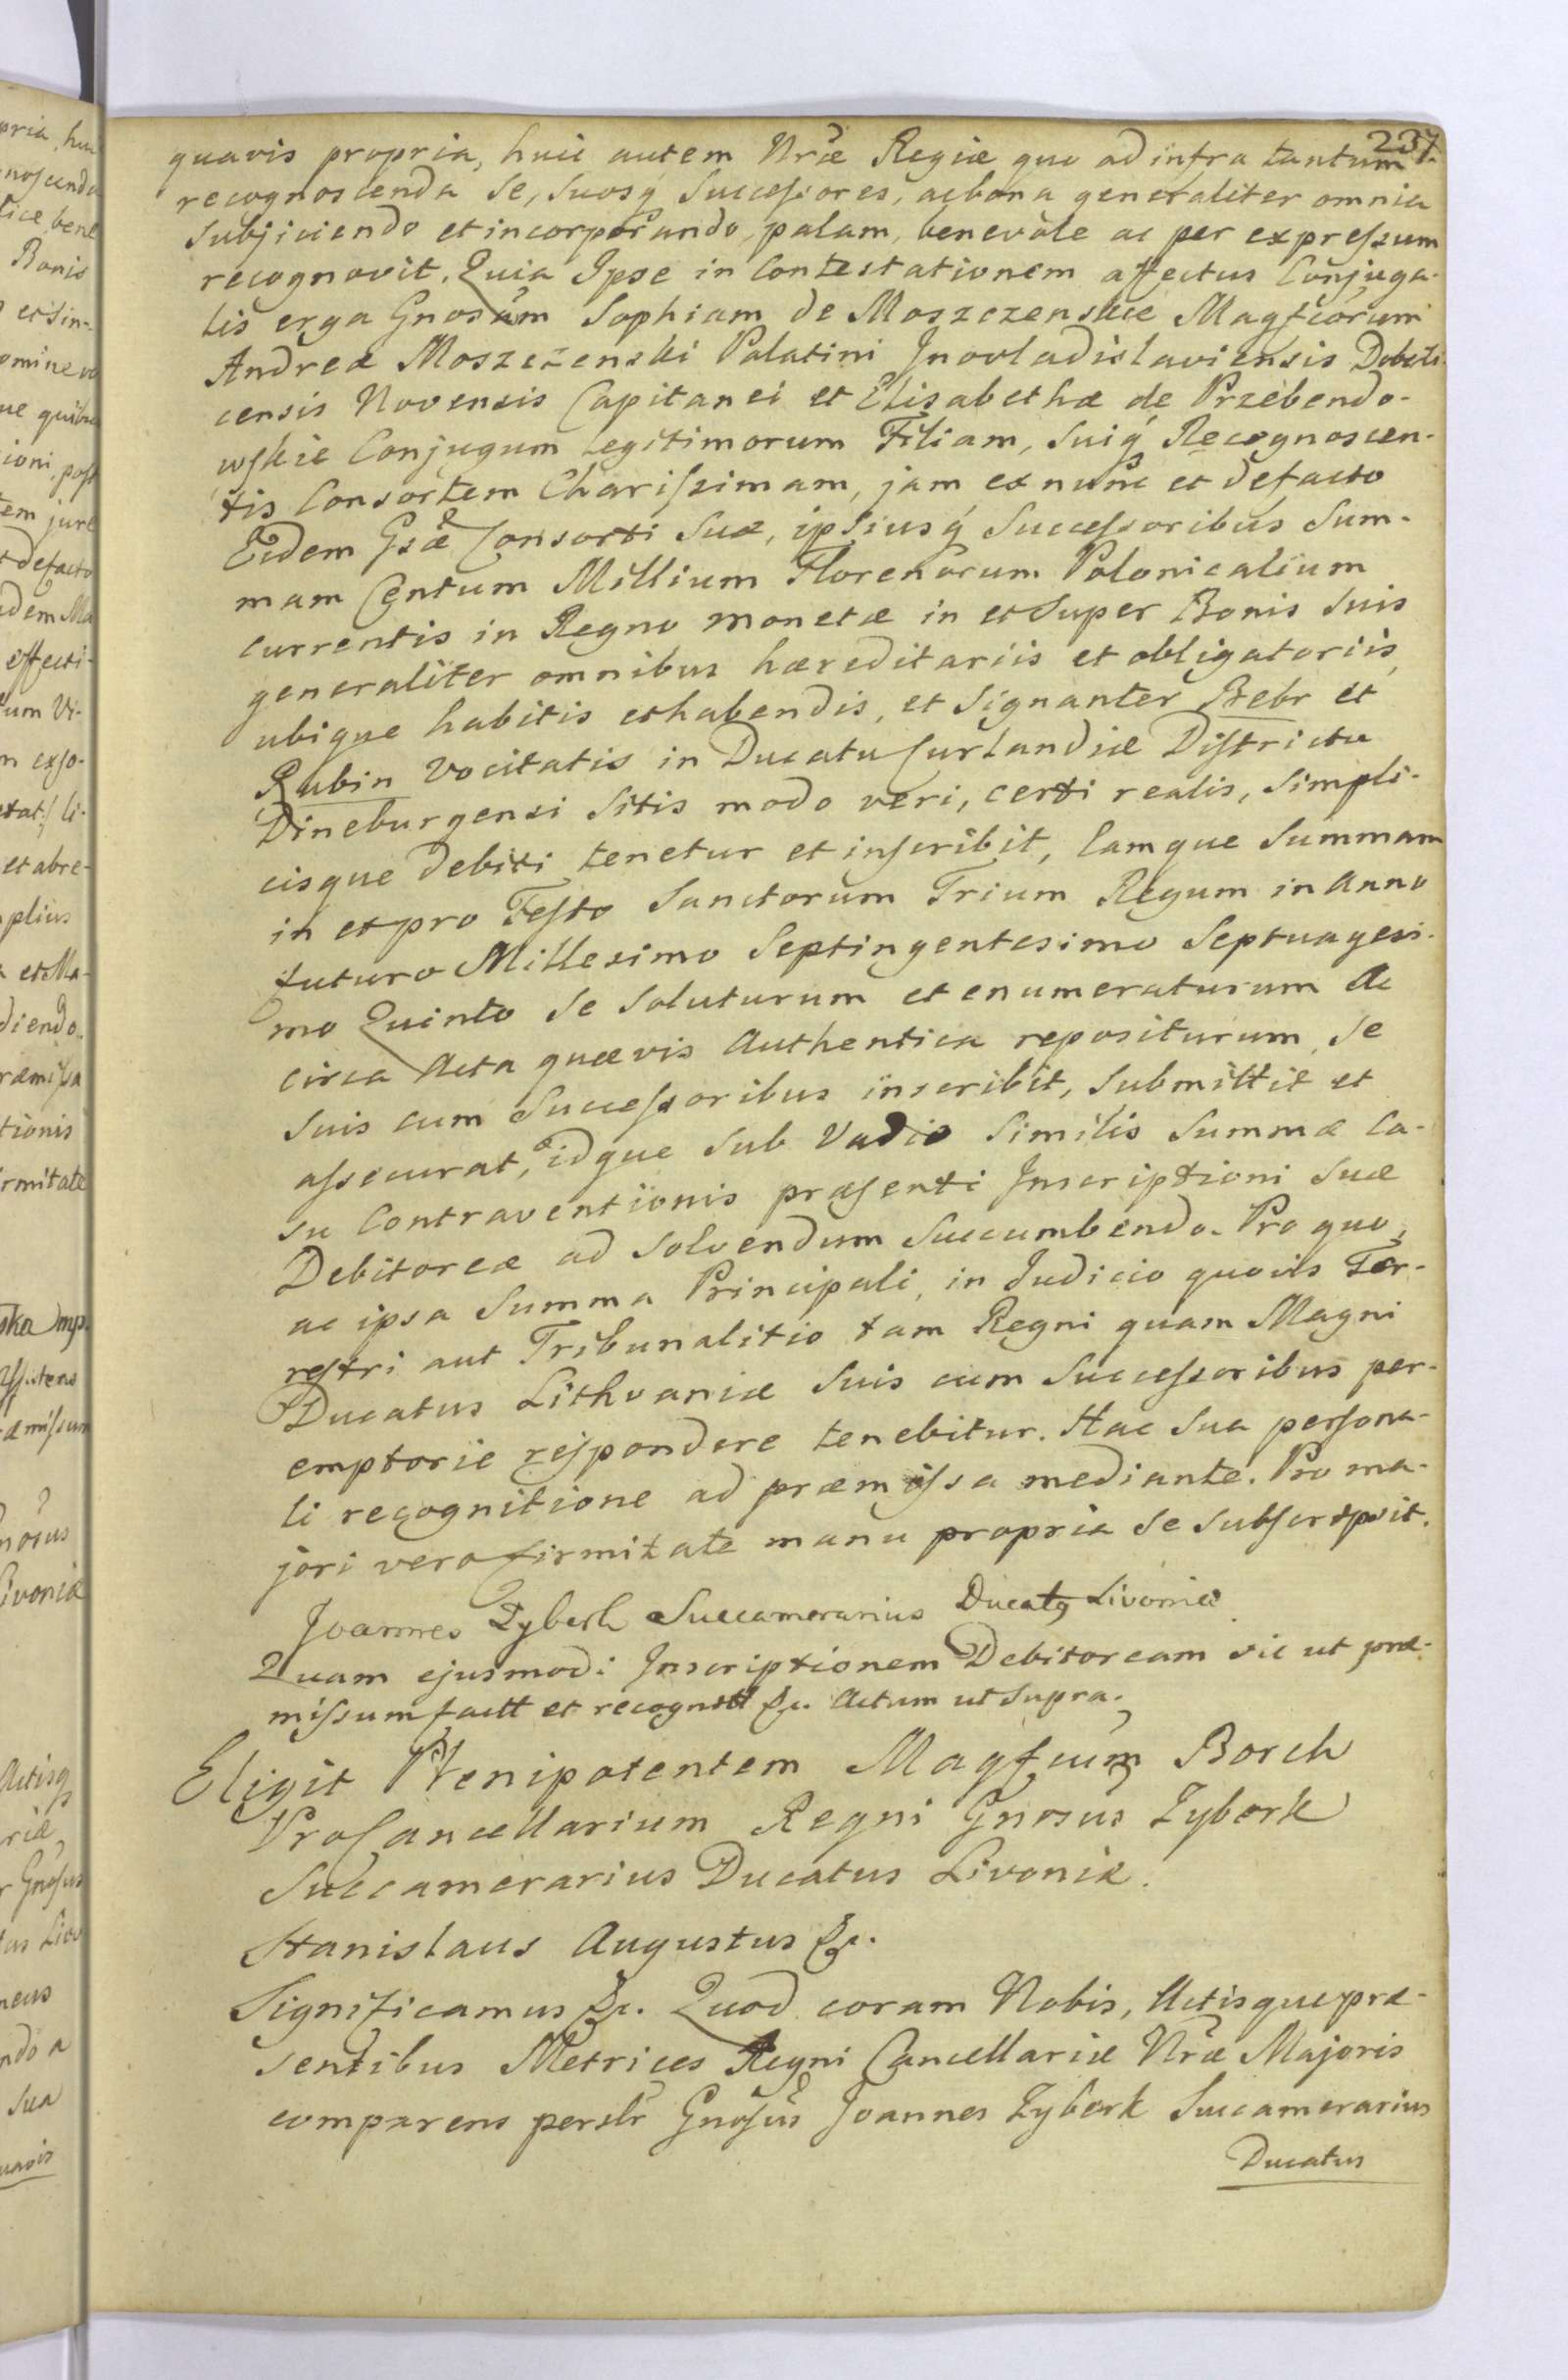 237.
quavis propria, huic autem Nræ Regiæ quo ad infra tantum
recognoscenda Se, Suosq Successores, ac bona generaliter omnia
Subjiciendo et incorporando, palam, benevole ac per expressum
recognovit. Quia Ipse in Contestationem affectus Conjuga-
lis erga Gnosam Sophiam de Moszczenskie Magfcorum
Andreæ Moszczenski Palatini Inovladislaviensis
censis Novensis Capitanei et Elisabethæ de Przebendo-
wskie Conjugum Legitimorum Filiam, Suiq Recognoscen-
tis Consortem Charissimam, jam ex nunc et de facto
Eidem Gsæ Consorti Suæ, ipsiusq Successoribus Sum-
mam Centum Millium Florenorum Polonicalium
currentis in Regno monetæ in et Super Bonis Suis
generaliter omnibus hæreditariis et obligatoriis,
ubique habitis et habendis, et Signanter Bebr et
Rubin vocitatis in Ducatu Curlandiæ Districtu
Dineburgensi Sitis modo veri, certi realis, Simpli-
cisque debiti tenetur et inscribit, Eamque Summam
in et pro Festo Sanctorum Trium Regum in Anno
futuro Millesimo Septingentesimo Septuagesi-
mo Quinto Se Soluturum et enumeraturum Ac
circa Acta quævis Authentica repositurum, Se
Suis cum Successoribus inscribit, Submittit et
assecurat, idque Sub Vadio Similis Summæ Ca-
su Contraventionis præsenti Inscriptioni Suæ
Debitoreæ ad Solvendum Succumbendo. Pro quo,
ac ipsa Summa Principali, in Judicio quovis Ter-
restri aut Tribunalitio tam Regni quam Magni
Ducatus Lithvaniæ Suis cum Successoribus per-
emptorie respondere tenebitur. Hac Sua persona-
li recognitione ad præmissa mediante. Pro ma-
jori vero firmitate manu propria Se Subscripsit.
Joannes Zyberk Succamerarius Ducatq Livoniæ
Quam ejusmodi Inscriptionem Debitoream sic ut præ-
missum factt et recognitt &c. Actum ut Supra.
Eligit Plenipotentem Magfcum Borch
ProCancellarium Regni Gnosus Zyberk
Succamerarius Ducatus Livoniæ.
Stanislaus Augustus &c.
Significamus &c. Quod coram Nobis, Actisque præ-
sentibus Metrices Regni Cancellariæ Nræ Majoris
comparens perslr Gnosus Joannes Zyberk Succamerarius
Ducatus